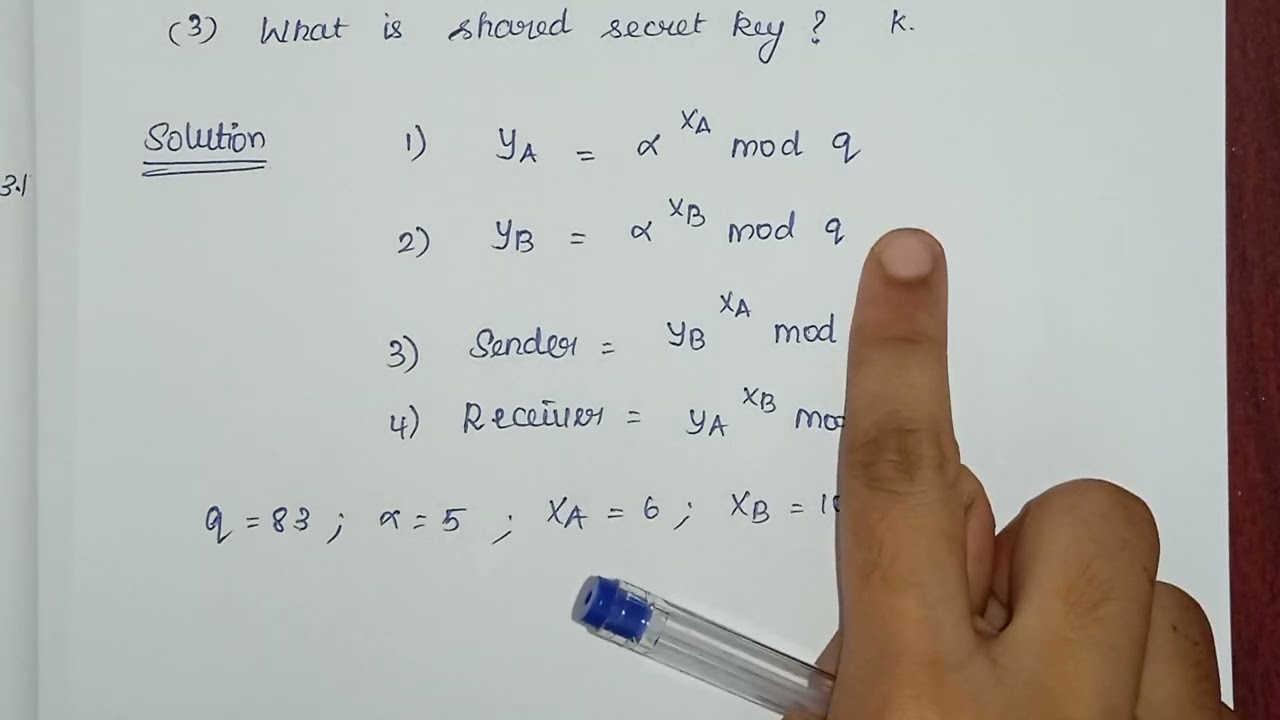 (3) What is shared secret key ? K.
Solution
3.1
1) YA = α^XA mod q
2) YB = α^XB mod q
3) Sender = YB^XA mod
4) Receiver = YA^XB
q = 83 ; α = 5 ; XA = 6 ; XB =